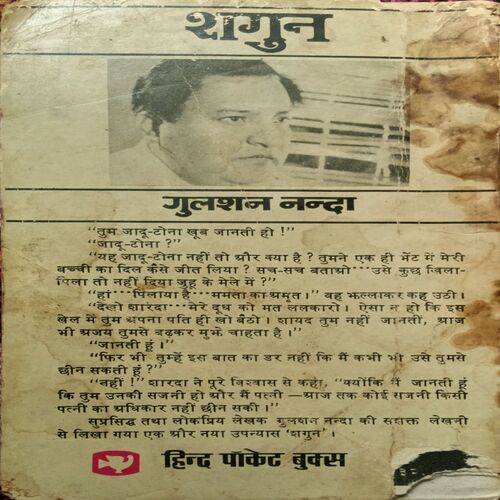 शगुन
गुलशन नन्दा
"तुम जादू-टोना खूब जानती हो !"
"जादू-टोना ?"
"यह जादू-टोना नहीं तो और क्या है ? तुमने एक ही भेंट में मेरी
बच्ची का दिल कैसे जीत लिया ? सच-सच बताओ···उसे कुछ खिला-
पिला तो नहीं दिया जुहू के मेले में ?"
"हां···पिलाया है···ममता का अमृत।" वह झल्लाकर कह उठी।
"देखो शारदा···मेरे दूध को मत ललकारो। ऐसा न हो कि इस
खेल में तुम अपना पति ही खो बैठो। शायद तुम नहीं जानतीं, आज
भी अजय तुमसे बढ़कर मुझे चाहता है।"
"जानती हूं।"
"फिर भी तुम्हें इस बात का डर नहीं कि मैं कभी भी उसे तुमसे
छीन सकती हूं ?"
"नहीं !" शारदा ने पूरे विश्वास से कहा, "क्योंकि मैं जानती हूं
कि तुम उनकी सजनी हो और मैं पत्नी—आज तक कोई सजनी किसी
पत्नी का अधिकार नहीं छीन सकी।"
सुप्रसिद्ध तथा लोकप्रिय लेखक गुलशन नन्दा की सशक्त लेखनी
से लिखा गया एक और नया उपन्यास 'शगुन'।
हिन्द पॉकेट बुक्स